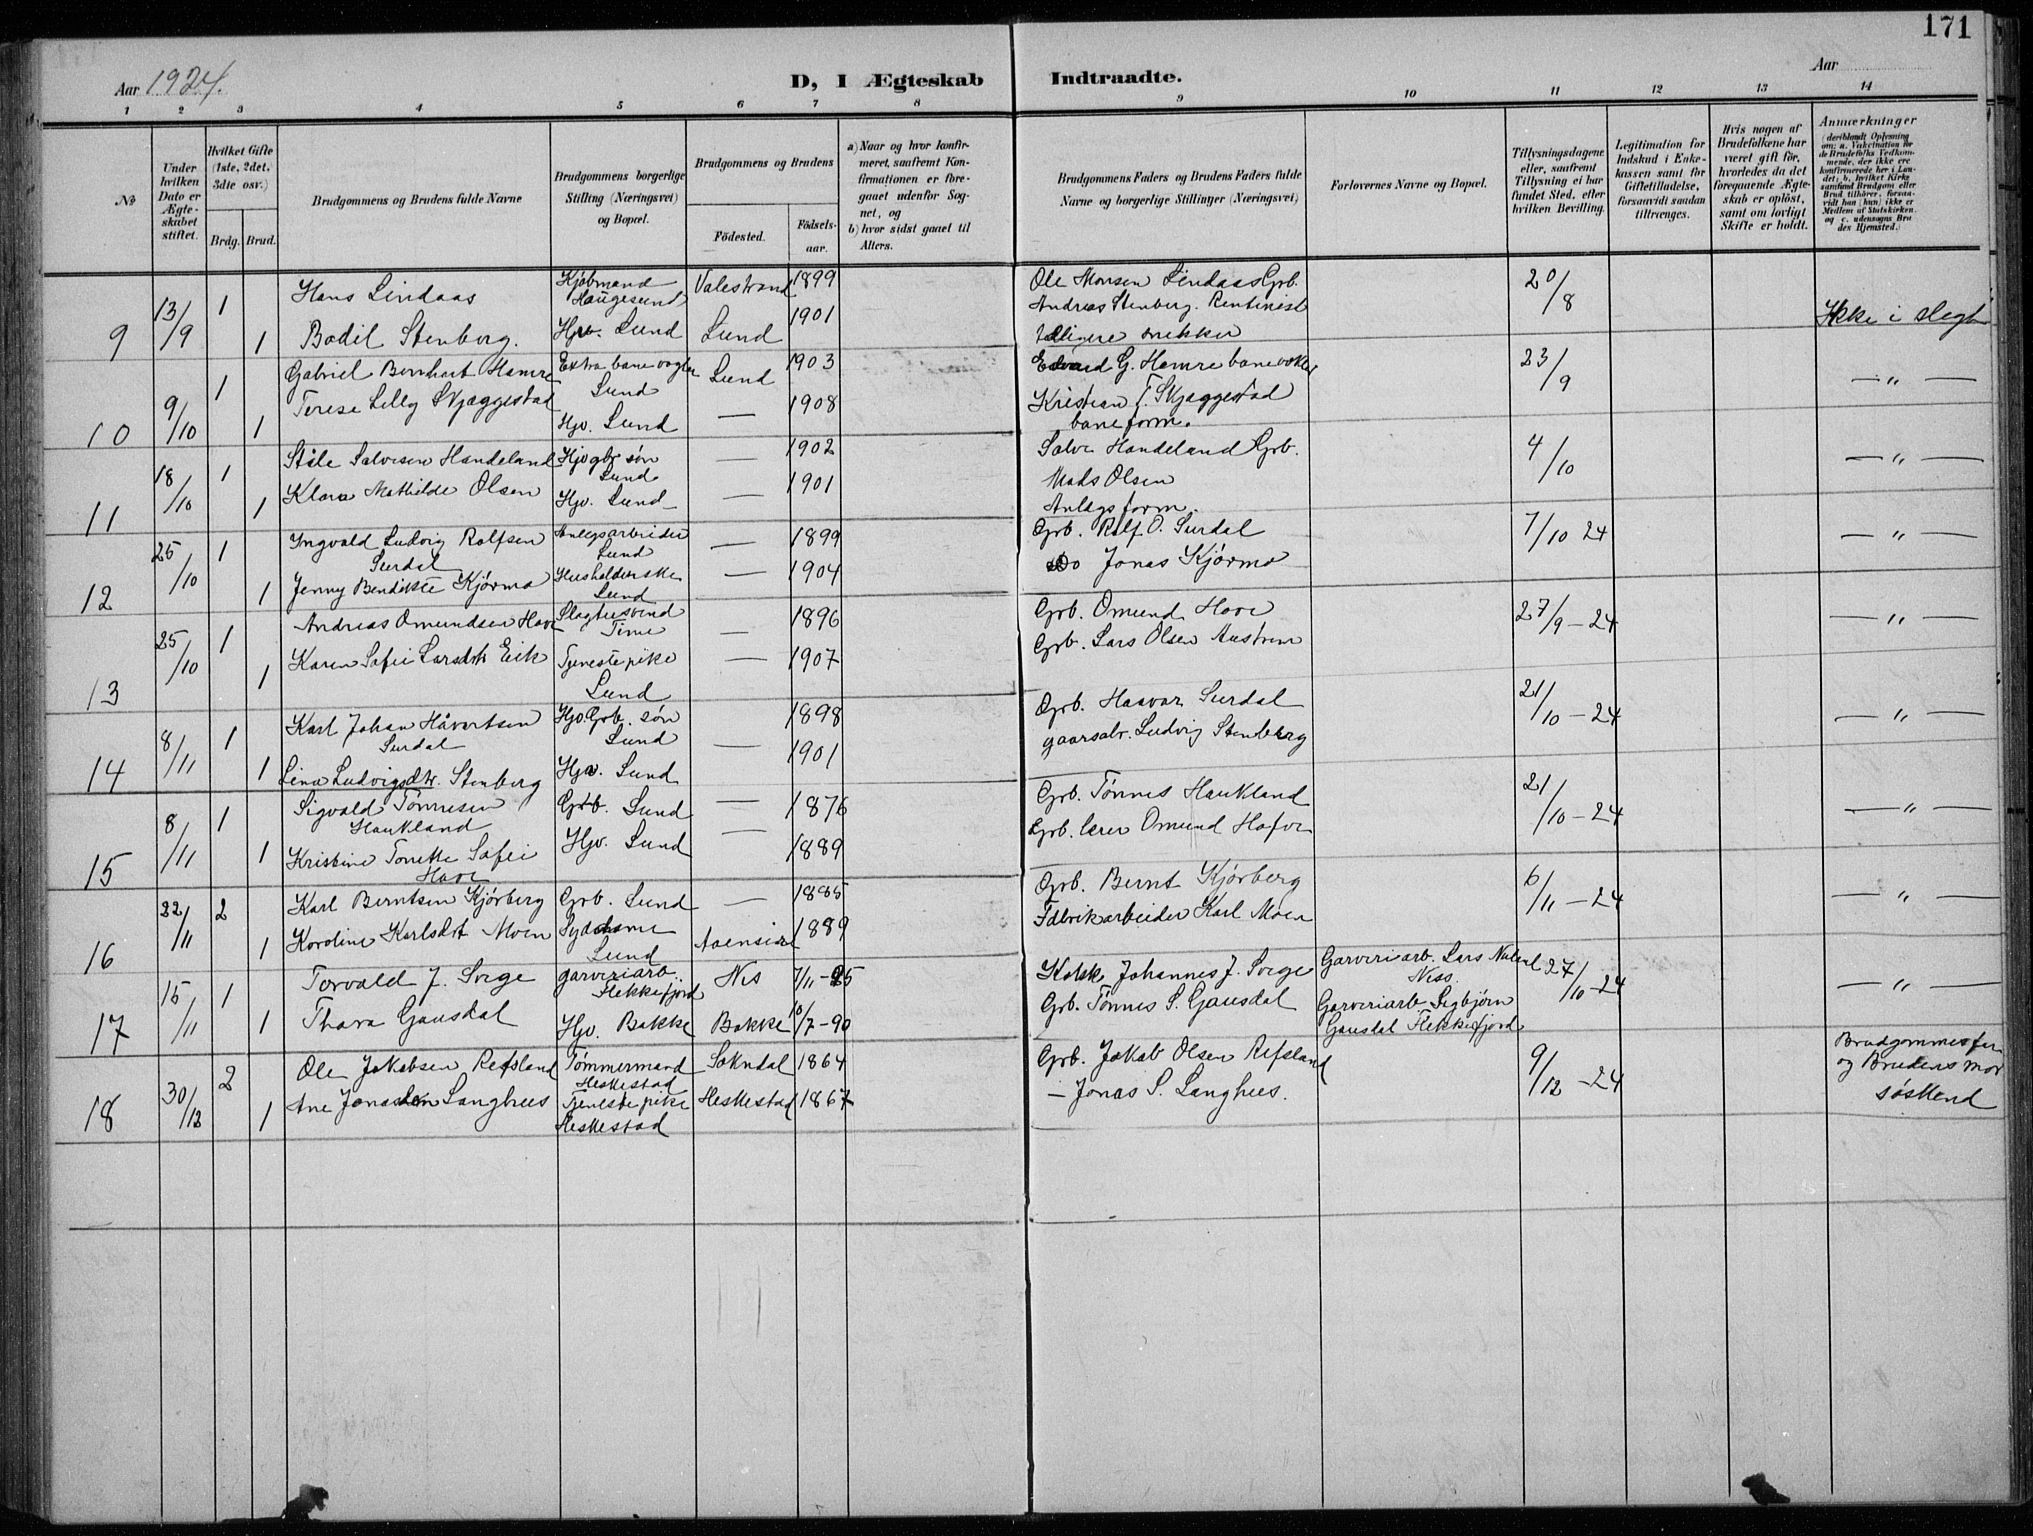 171
Aar 1924.
D, I Ægteskab Indtraadte.
Aar
1 2 3 4 5 6 7 8 9 10 11 12 13 14
№
Under hvilken Dato er Ægteskabet stiftet.
Hvilket Gifte (1ste, 2det, 3die osv.)
Brdg. Brud.
Brudgommens og Brudens fulde Navne
Brudgommens borgerlige Stilling (Næringsvei) og Bopæl.
Brudgommens og Brudens
Födested. Födselsaar.
a) Naar og hvor konfirmeret, saafremt Konfirmationen er foregaaet udenfor Sognet, og
b) hvor sidst gaaet til Alters.
Brudgommens Faders og Brudens Faders fulde Navne og borgerlige Stillinger (Næringsvei)
Forlovernes Navne og Bopæl.
Tillysningsdagene eller, saafremt Tillysning ei har fundet Sted, efter hvilken Bevilling.
Legitimation for Indskud i Enkekassen samt for Giftetilladelse, forsaavidt saadan tiltrænges.
Hvis nogen af Brudefolkene har været gift för, hvorledes da det foregaaende Ægteskab er oplöst, samt om lovligt Skifte er holdt.
Anmærkninger (deriblandt Oplysning om: a. Vakcination for de Brudefolks Vedkommende, der ikke ere konfirmerede her i Landet; b. hvilket Kirkesamfund Brudgom eller Brud tilhörer, forsaavidt han (hun) ikke er Medlem af Statskirken, og c. udensogns Brudes Hjemsted.)
9 13/9 1 Hans Lindaas Kjøbmand Haugesund Valestrand 1899 Ole Monsen Lindaas Grb. 20/8
1 Bodil Stenberg. Hjv. Lund Lund 1901 Andreas Stenberg. Rentenist tidligere snekker Ikke i slegt
10 9/10 1 Gabriel Bernhart Hamre Extra banevogter Lund Lund 1903 Edvard G. Hamre banevokter 23/9 — " —
1 Terese Lilly Skjæggestad Hjv. Lund — 1908 Kristian T. Skjæggestad baneform.
11 18/10 1 Ståle Salvesen Handeland Hjv gbr søn Lund — 1902 Salve Handeland Grb. 4/10 — " —
1 Klara Mathilde Olsen Hjv. Lund — 1901 Mads Olsen Anlegsform.
12 25/10 1 Yngvald Ludvig Rolfsen Surdal Anlegsarbeider Lund — 1899 Grb. Rolf O. Surdal 7/10 24 — " —
1 Jenny Bendikte Kjørmo Husholderske Lund — 1904 Do Jonas Kjørmo
13 25/10 1 Andreas Omundsen Hove Slagtersvend Time — 1896 Grb. Omund Hove 27/9 – 24 — " —
1 Karen Sofie Larsdtr Eik Tjenestepike Lund — 1907 Grb. Lars Olsen Austrem
14 8/11 1 Karl Johan Håvortsen Surdal Hjv. Grb. søn Lund — 1898 Grb. Haavar Surdal 21/10 – 24 — " —
1 Lina Ludvigsdtr. Stenberg Hjv. Lund 1901 gaarsalv. Ludvig Stenberg
15 8/11 1 Sigvald Tønnesen Haukland Grb. Lund — 1876 Grb. Tønnes Haukland 21/10 – 24 — " —
1 Kristine Tonette Sofie Hove Hjv. Lund — 1889 Grb. lærer Omund Hofve
16 22/11 2 Karl Berntsen Kjørberg Grb. Lund — 1885 Grb. Bernt Kjørberg 6/11 – 24 — " —
1 Karoline Karlsdt Moen Sydame Lund Aaensire 1889 Fabrikarbeider Karl Moen
17 15/11 1 Torvald J. Svege garveriarb. Flekkefjord Nes 7/11 – 85 Kolsk. Johannes J. Svege Garveriarb. Lars Nuland Ness. 27/10 – 24 — " —
1 Thora Gausdal Hjv. Bakke Bakke 10/7 – 90 Grb. Tønnes S. Gausdal Garveriarb Sigbjørn Gausdal Flekkefjord
18 30/12 2 Ole Jakobsen Refsland Tømmermand Heskestad Sokndal 1864 Grb. Jakob Olsen Refsland 9/12 – 24 Brudgommes far og Brudens mor søskend
1 Ane Jonasden Langhus Tjenestepike Heskestad Heskestad 1867 — Jonas S. Langhus.